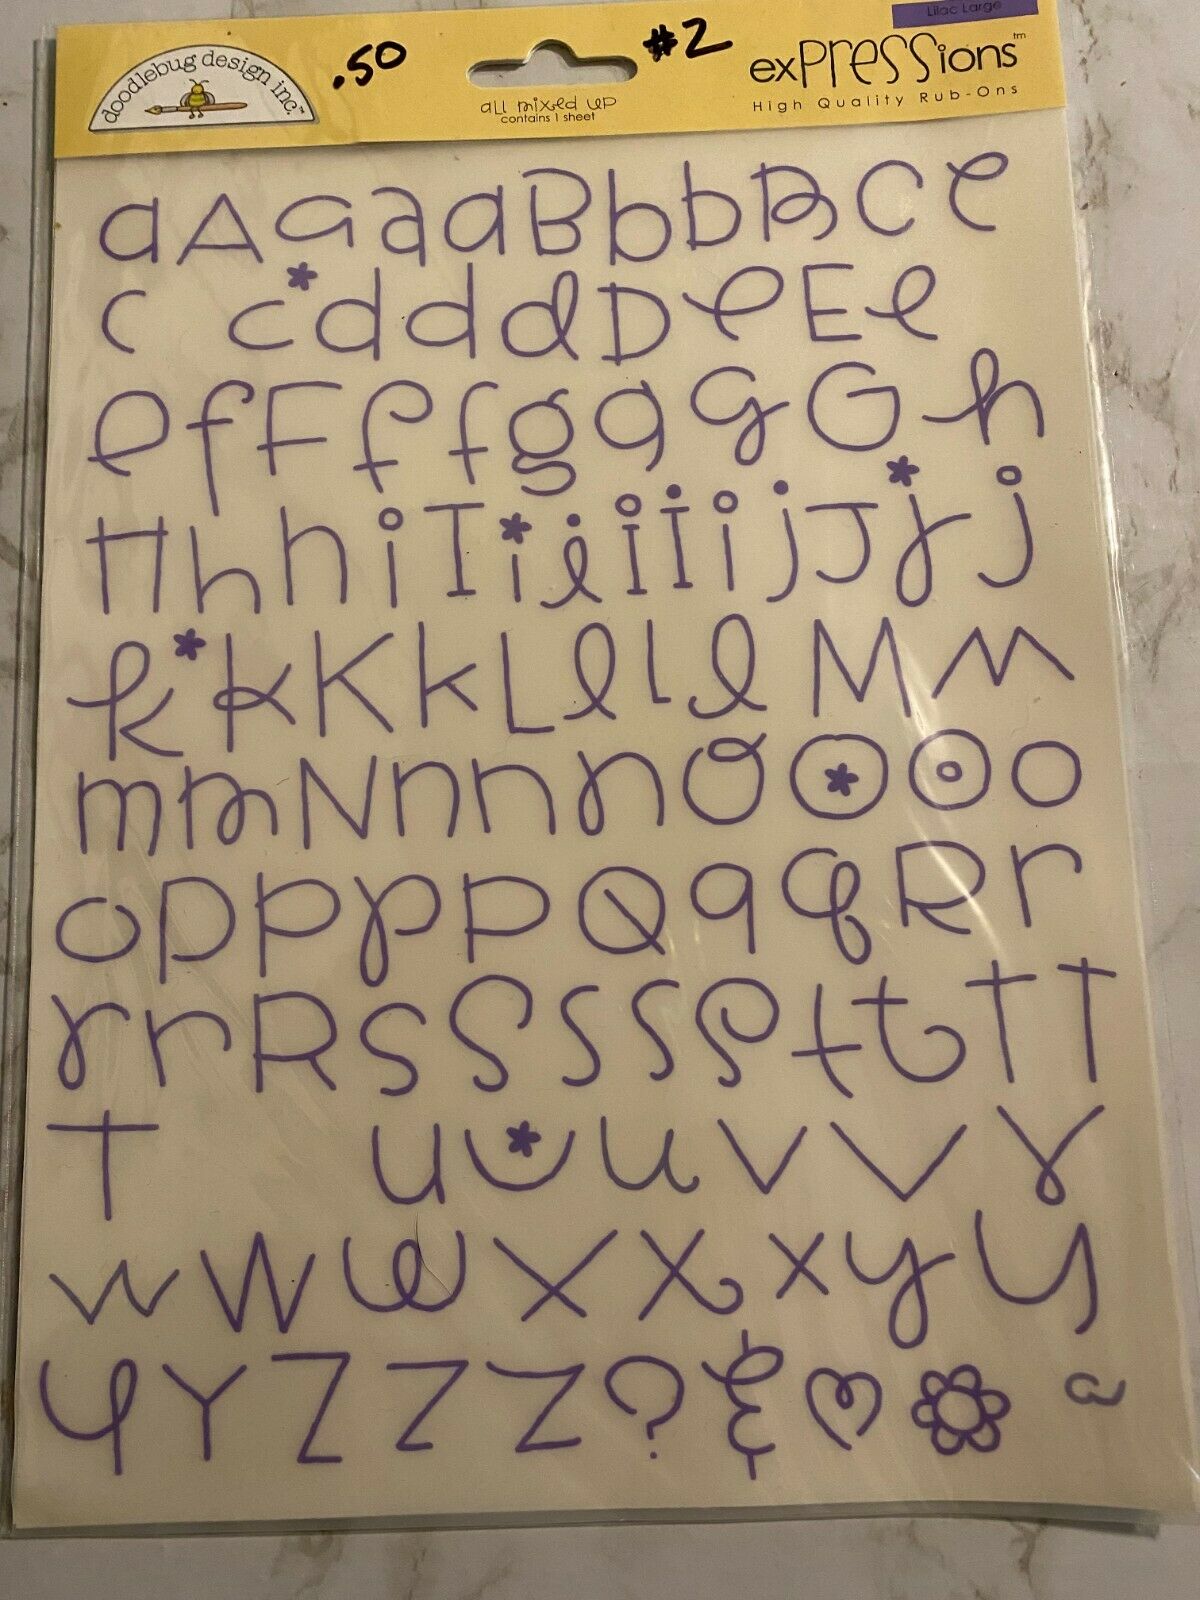 Lilac Large
doodlebug design inc.™
.50
#2
exPRESSions™
High Quality Rub-Ons
all mixed up
contains 1 sheet
a A a a a B b b B C e
c c d d d D e E e
e f F f f g g g G h
H h h i I i i i i i j J j j
k k K k L l l l M m
m m N n n n O O O o
o p p p p Q q q R r
r r R s S s s s t t T T
T u u u v v v
w W w x x x y y
y Y Z z z ? & a